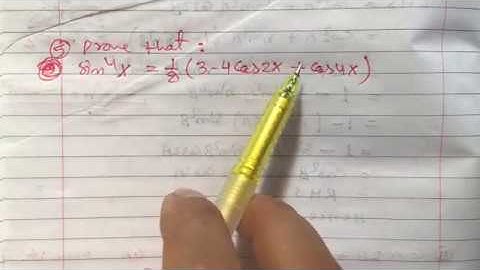 ⑤ prove that:
sin⁴x = 1/8 (3 - 4cos2x + cos4x)